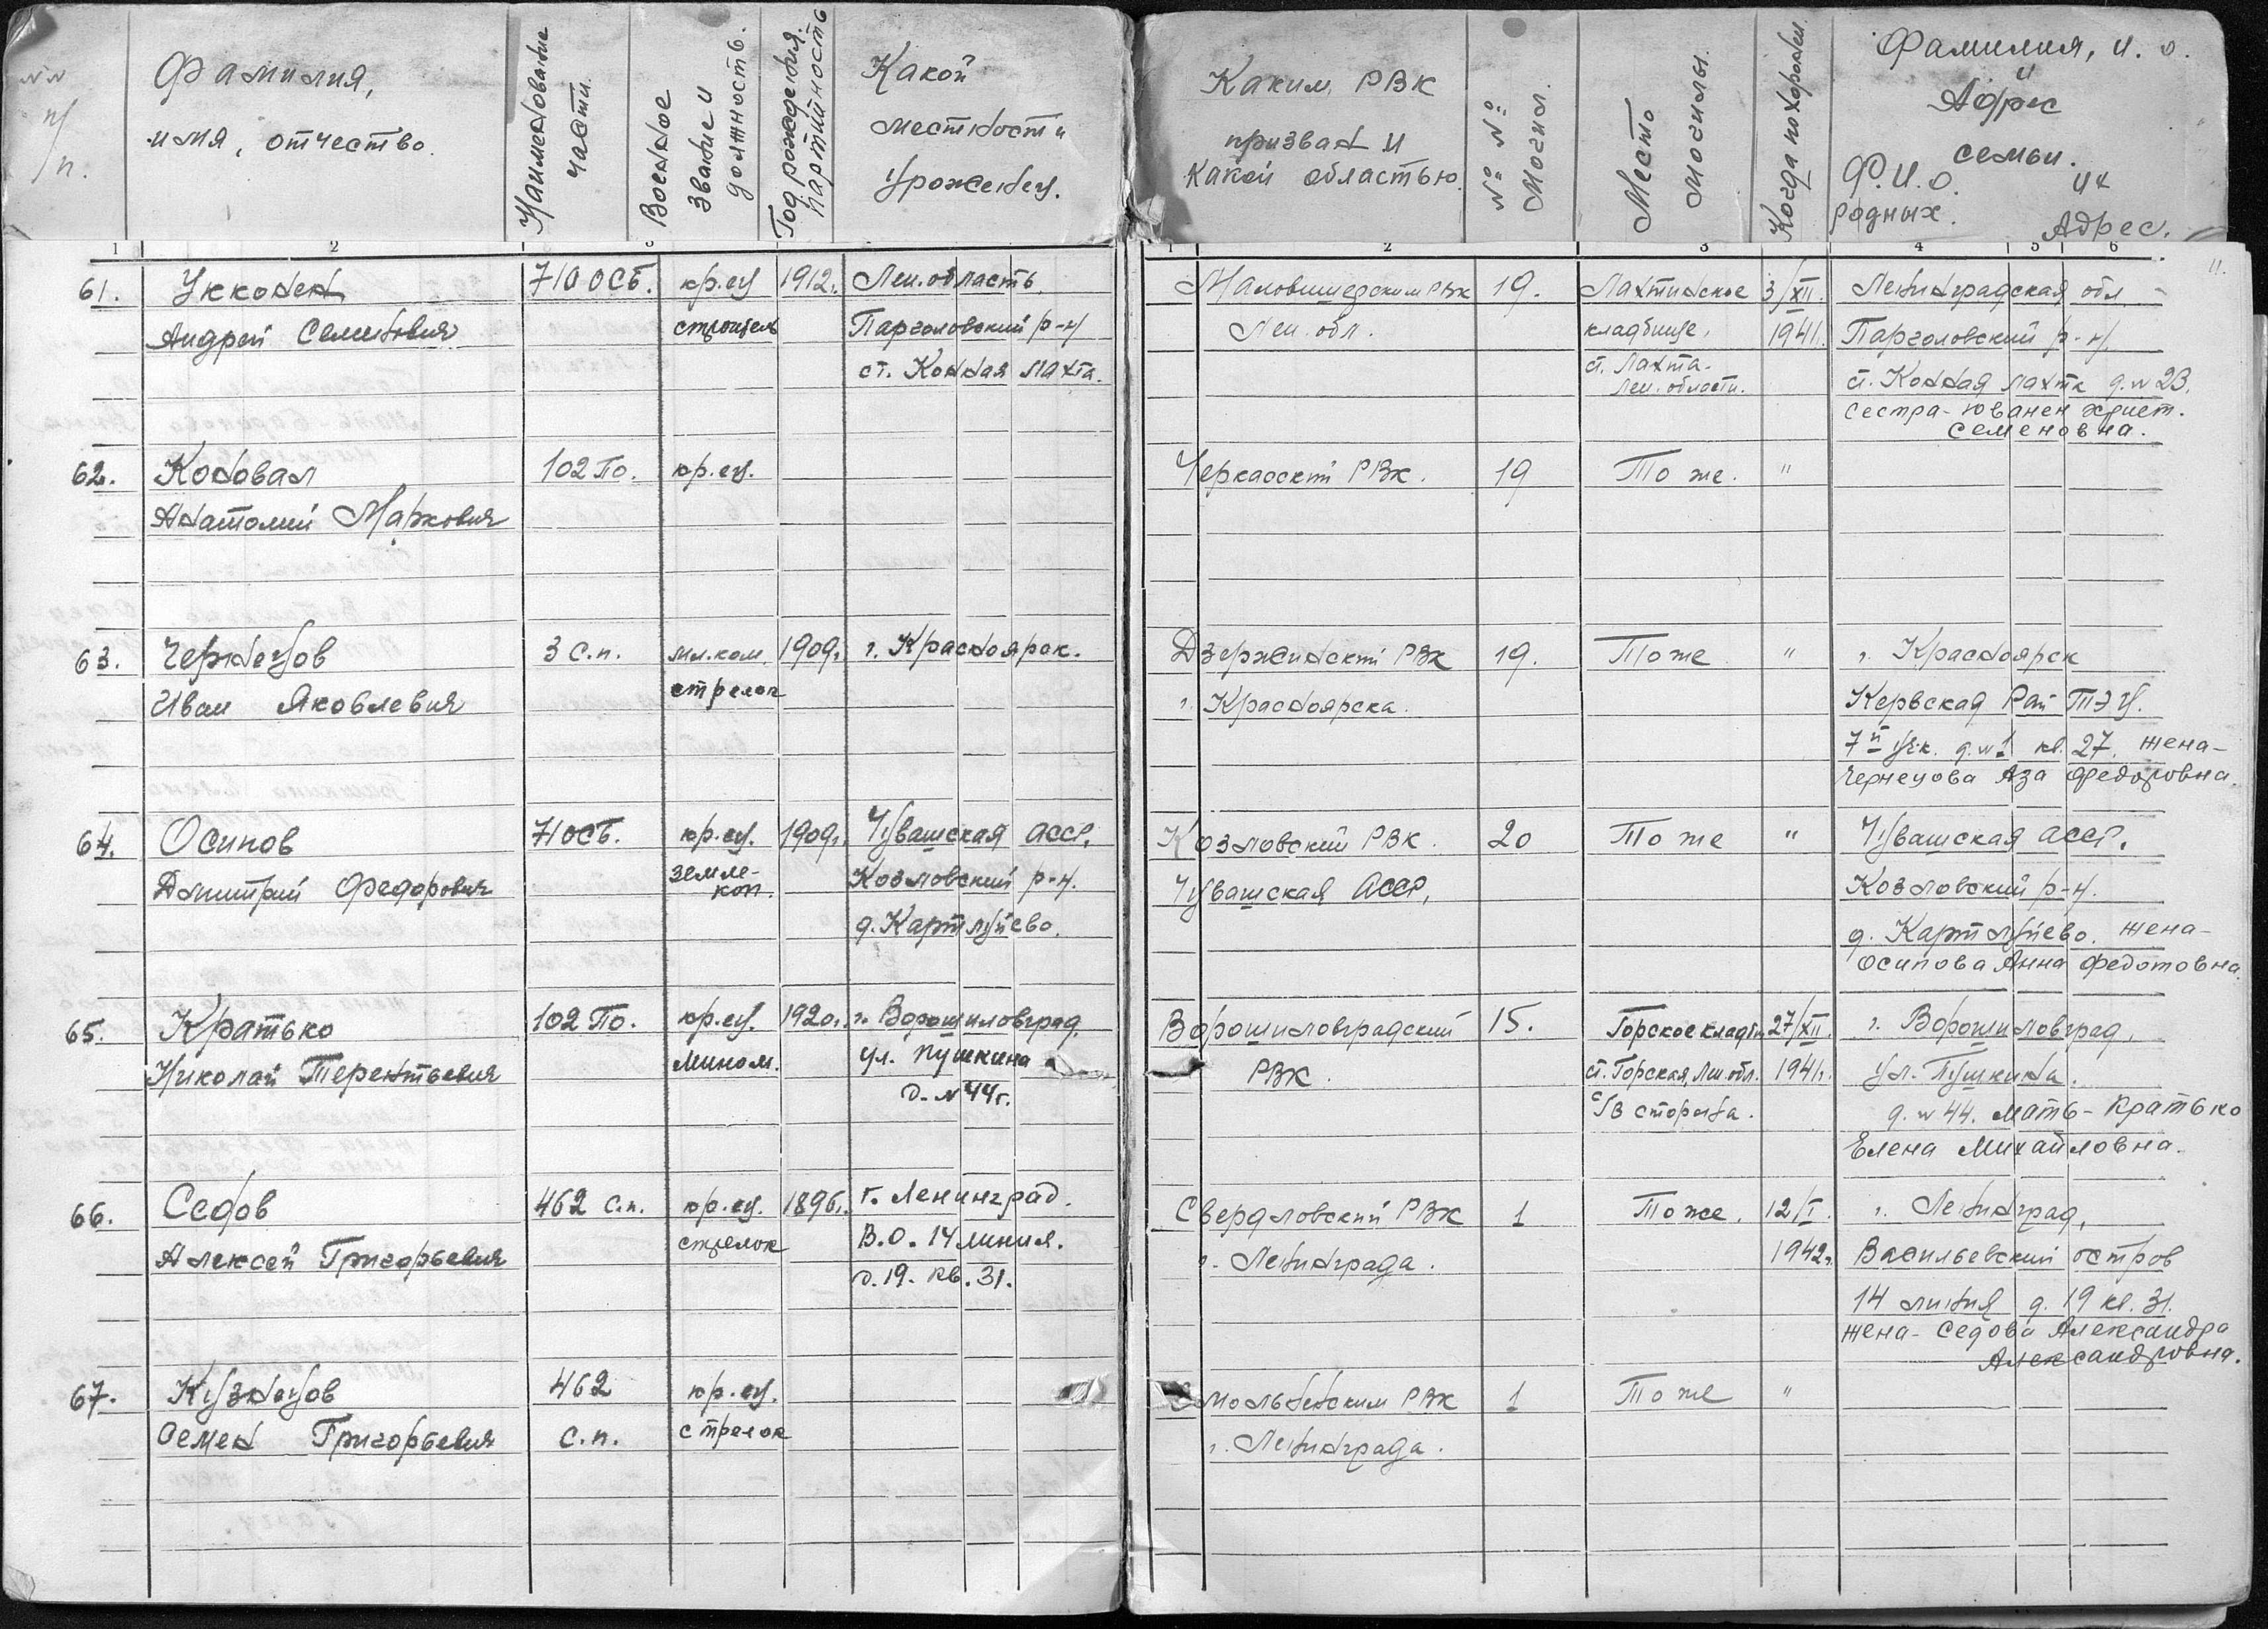 №№ п/п.
Фамилия,
имя, отчество.
Наименование части.
Военное звание и должность.
Год рождения. партийность
Какой
местности
Уроженец.
Каким РВК
призван и
какой областью.
№№ №№ Могил.
Место могилы.
Когда похоронен.
Фамилия, и. о.
и
Адрес
семьи.
Ф.И.О. их
родных. Адрес.
1 2 3
1 2 3 4 5 6
11.
61. Укконен 710 ОСБ. кр.ец 1912г. Лен. область. Маловишерским РВК 19. Лахтинское 3/XII. Ленинградская обл.
Андрей Семенович строитель Парголовский р-н Лен. обл. кладбище, 1941г. Парголовский р-н.
ст. Конная Лахта. ст. Лахта- ст. Конная Лахта д. № 23.
Лен. области. сестра - Юванен Христ.
Семеновна.
62. Коновал 102 ПО. кр.ец. Черкасский РВК. 19 То же. "
Анатолий Маркович
63. Чернецов 3 с.п. мл.ком. 1909г. г. Красноярск. Дзержинский РВК 19. То же " г. Красноярск
Иван Яковлевич стрелок г. Красноярска. Кервская Рай ТЭЦ.
7й уч. д. № 1 кв. 27. жена-
Чернецова Аза Федоровна.
64. Осипов 710СБ. кр.ец. 1909г. Чувашская АССР. Козловский РВК. 20 То же " Чувашская АССР.
Дмитрий Федорович земле- Козловский р-н. Чувашская АССР, Козловский р-н.
коп.
д. Картлуево. д. Картлуево. жена-
Осипова Анна Федотовна.
65. Кратько 102 ПО. кр.ец. 1920г. г. Ворошиловград. Ворошиловградский 15. Горское кладб. 27/XII. г. Ворошиловград,
Николай Терентьевич мином. ул. Пушкина РВК. ст. Горская, Лен. обл. 1941г. ул. Пушкина.
д. № 44г. С/В сторона. д. № 44. мать - Кратько
Елена Михайловна.
66. Седов 462 с.п. кр.ец. 1896г. г. Ленинград. Свердловский РВК 1 То же. 12/I. г. Ленинград,
Алексей Григорьевич стрелок В.О. 14 линия. г. Ленинграда. 1942г. Васильевский остров
д. 19. кв. 31. 14 линия д. 19 кв. 31.
жена - Седова Александра
Александровна.
67. Кузнецов 462 кр.ец. Смольненским РВК 1 То же "
Семен Григорьевич с.п. стрелок г. Ленинграда.